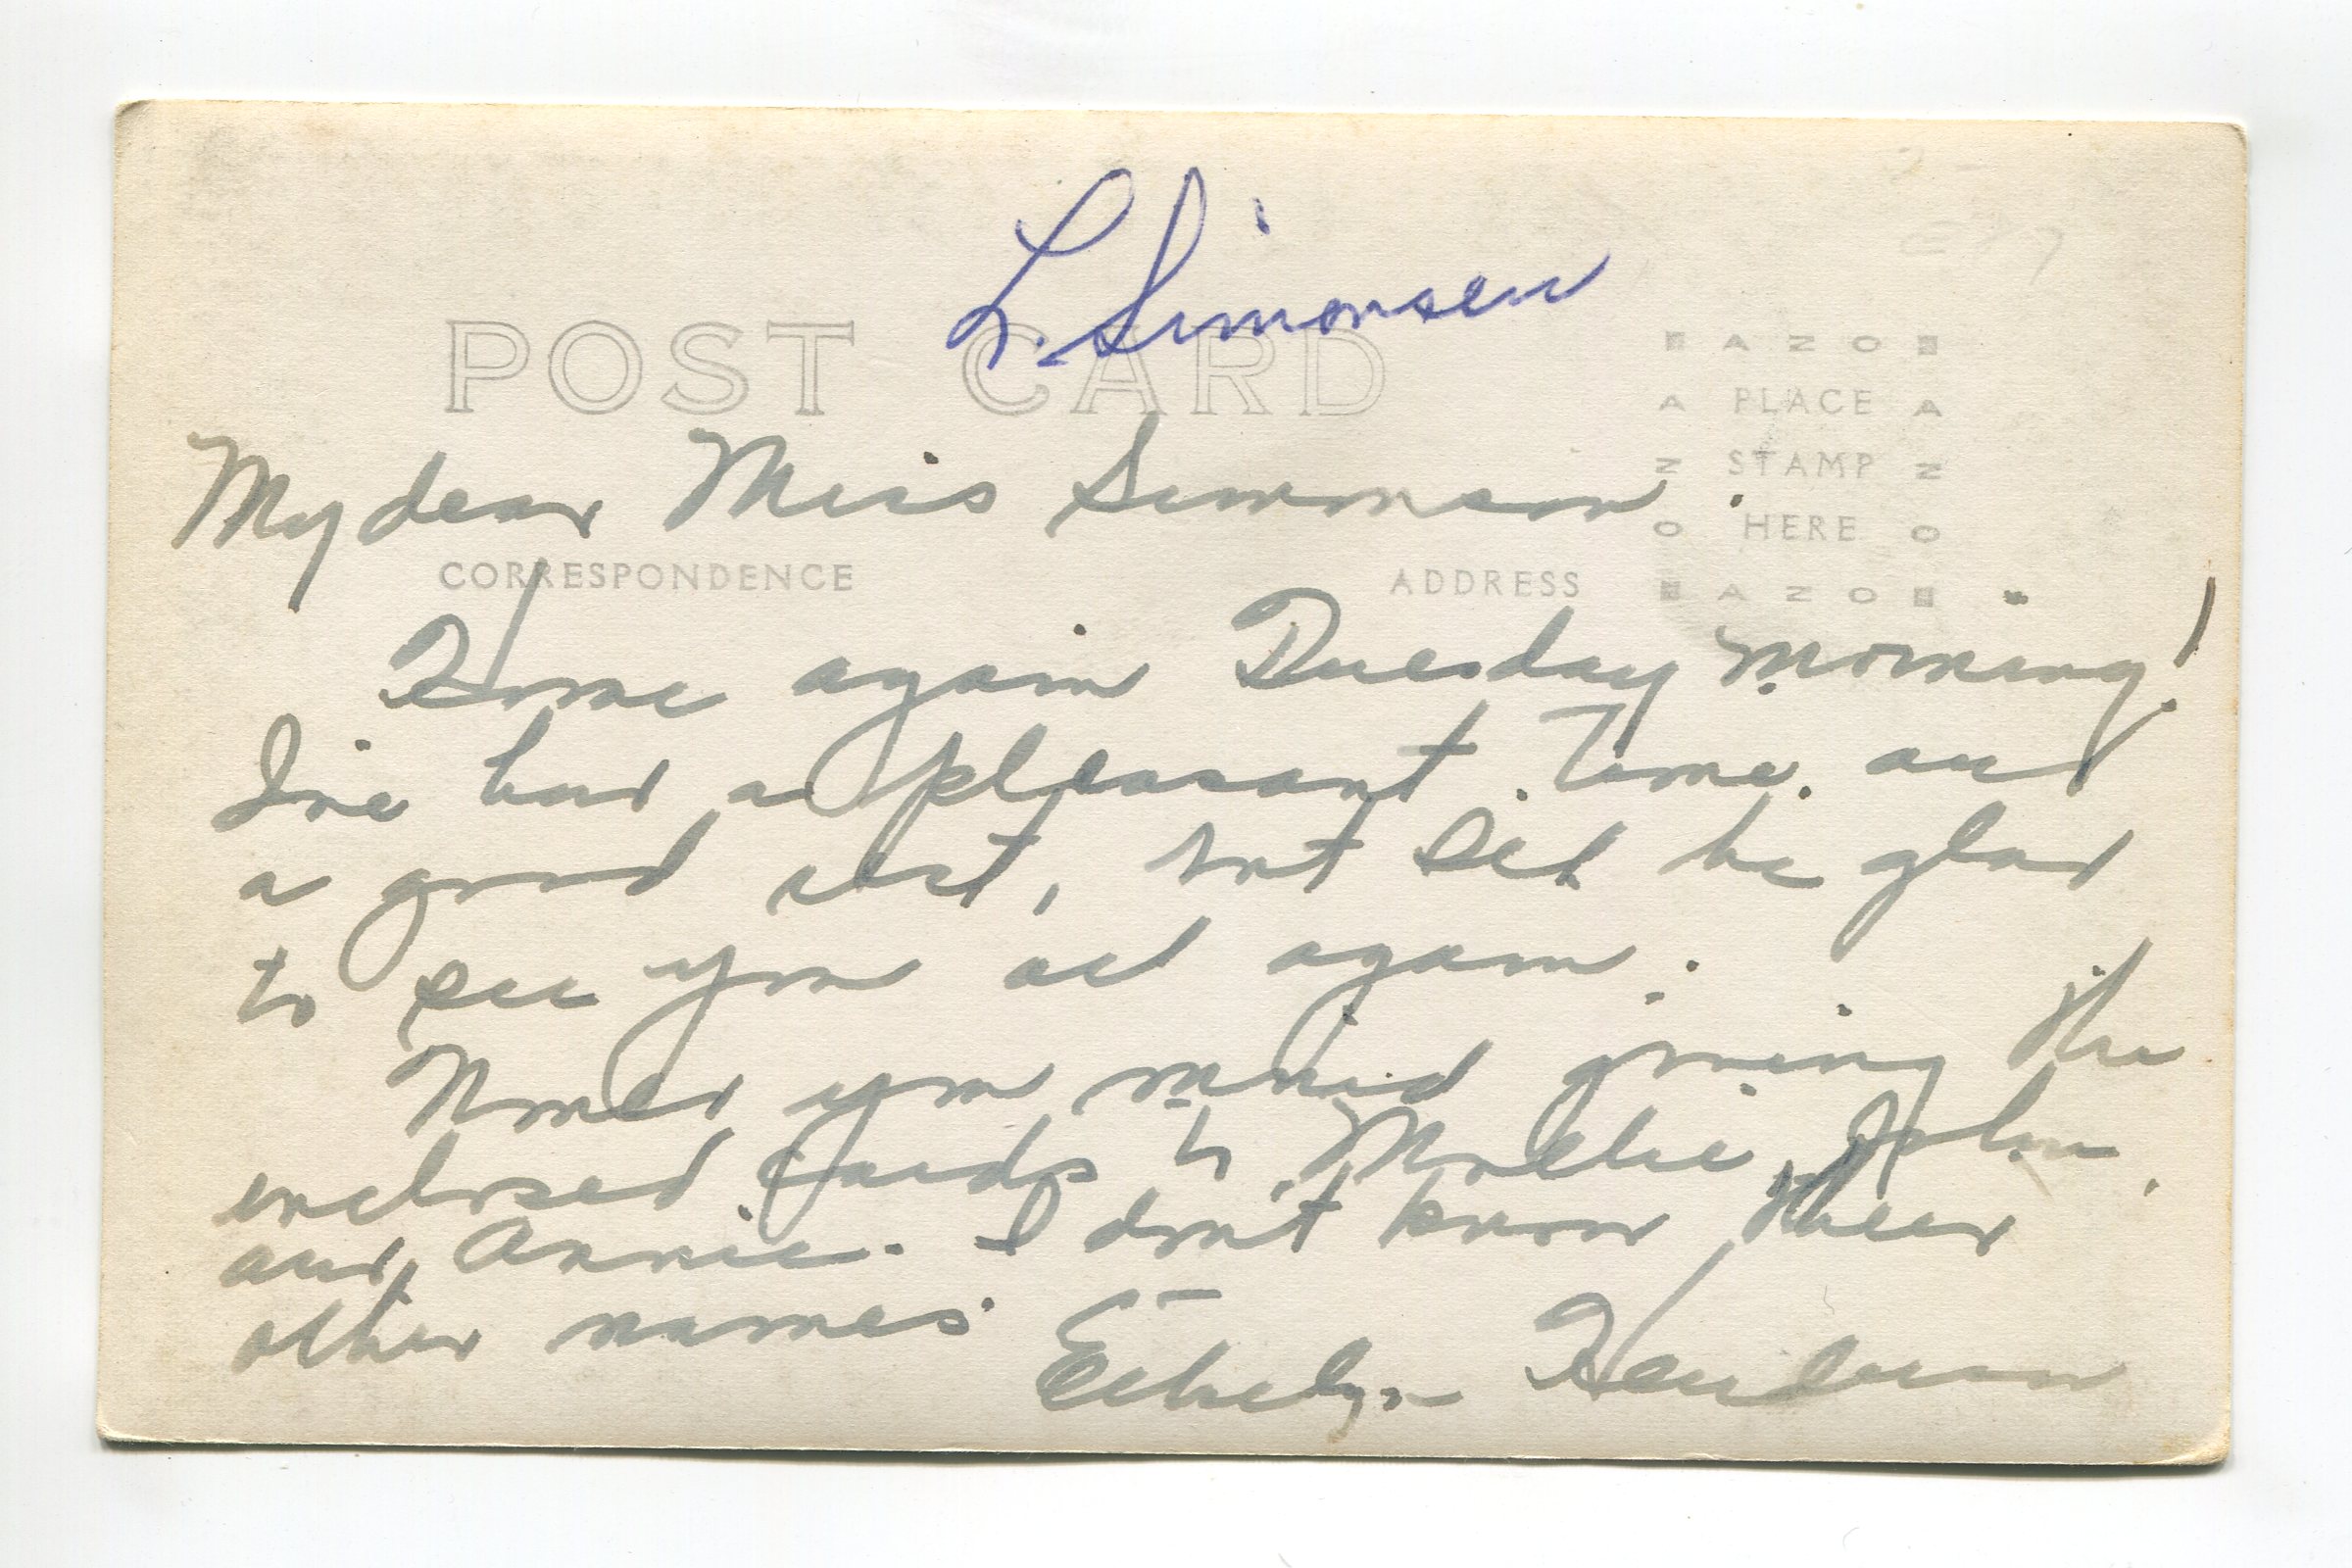 L. Simonsen
POST CARD
AZO
A PLACE A
Z STAMP Z
O HERE O
AZO
My dear Miss Simonson.
CORRESPONDENCE ADDRESS
Home again Tuesday morning!
I've had a pleasant time and
a good rest, but I'll be glad
to see you all again.
Would you mind giving the
enclosed cards to Mollie, John,
and Annie. I don't know their
other names.
Ethelyn